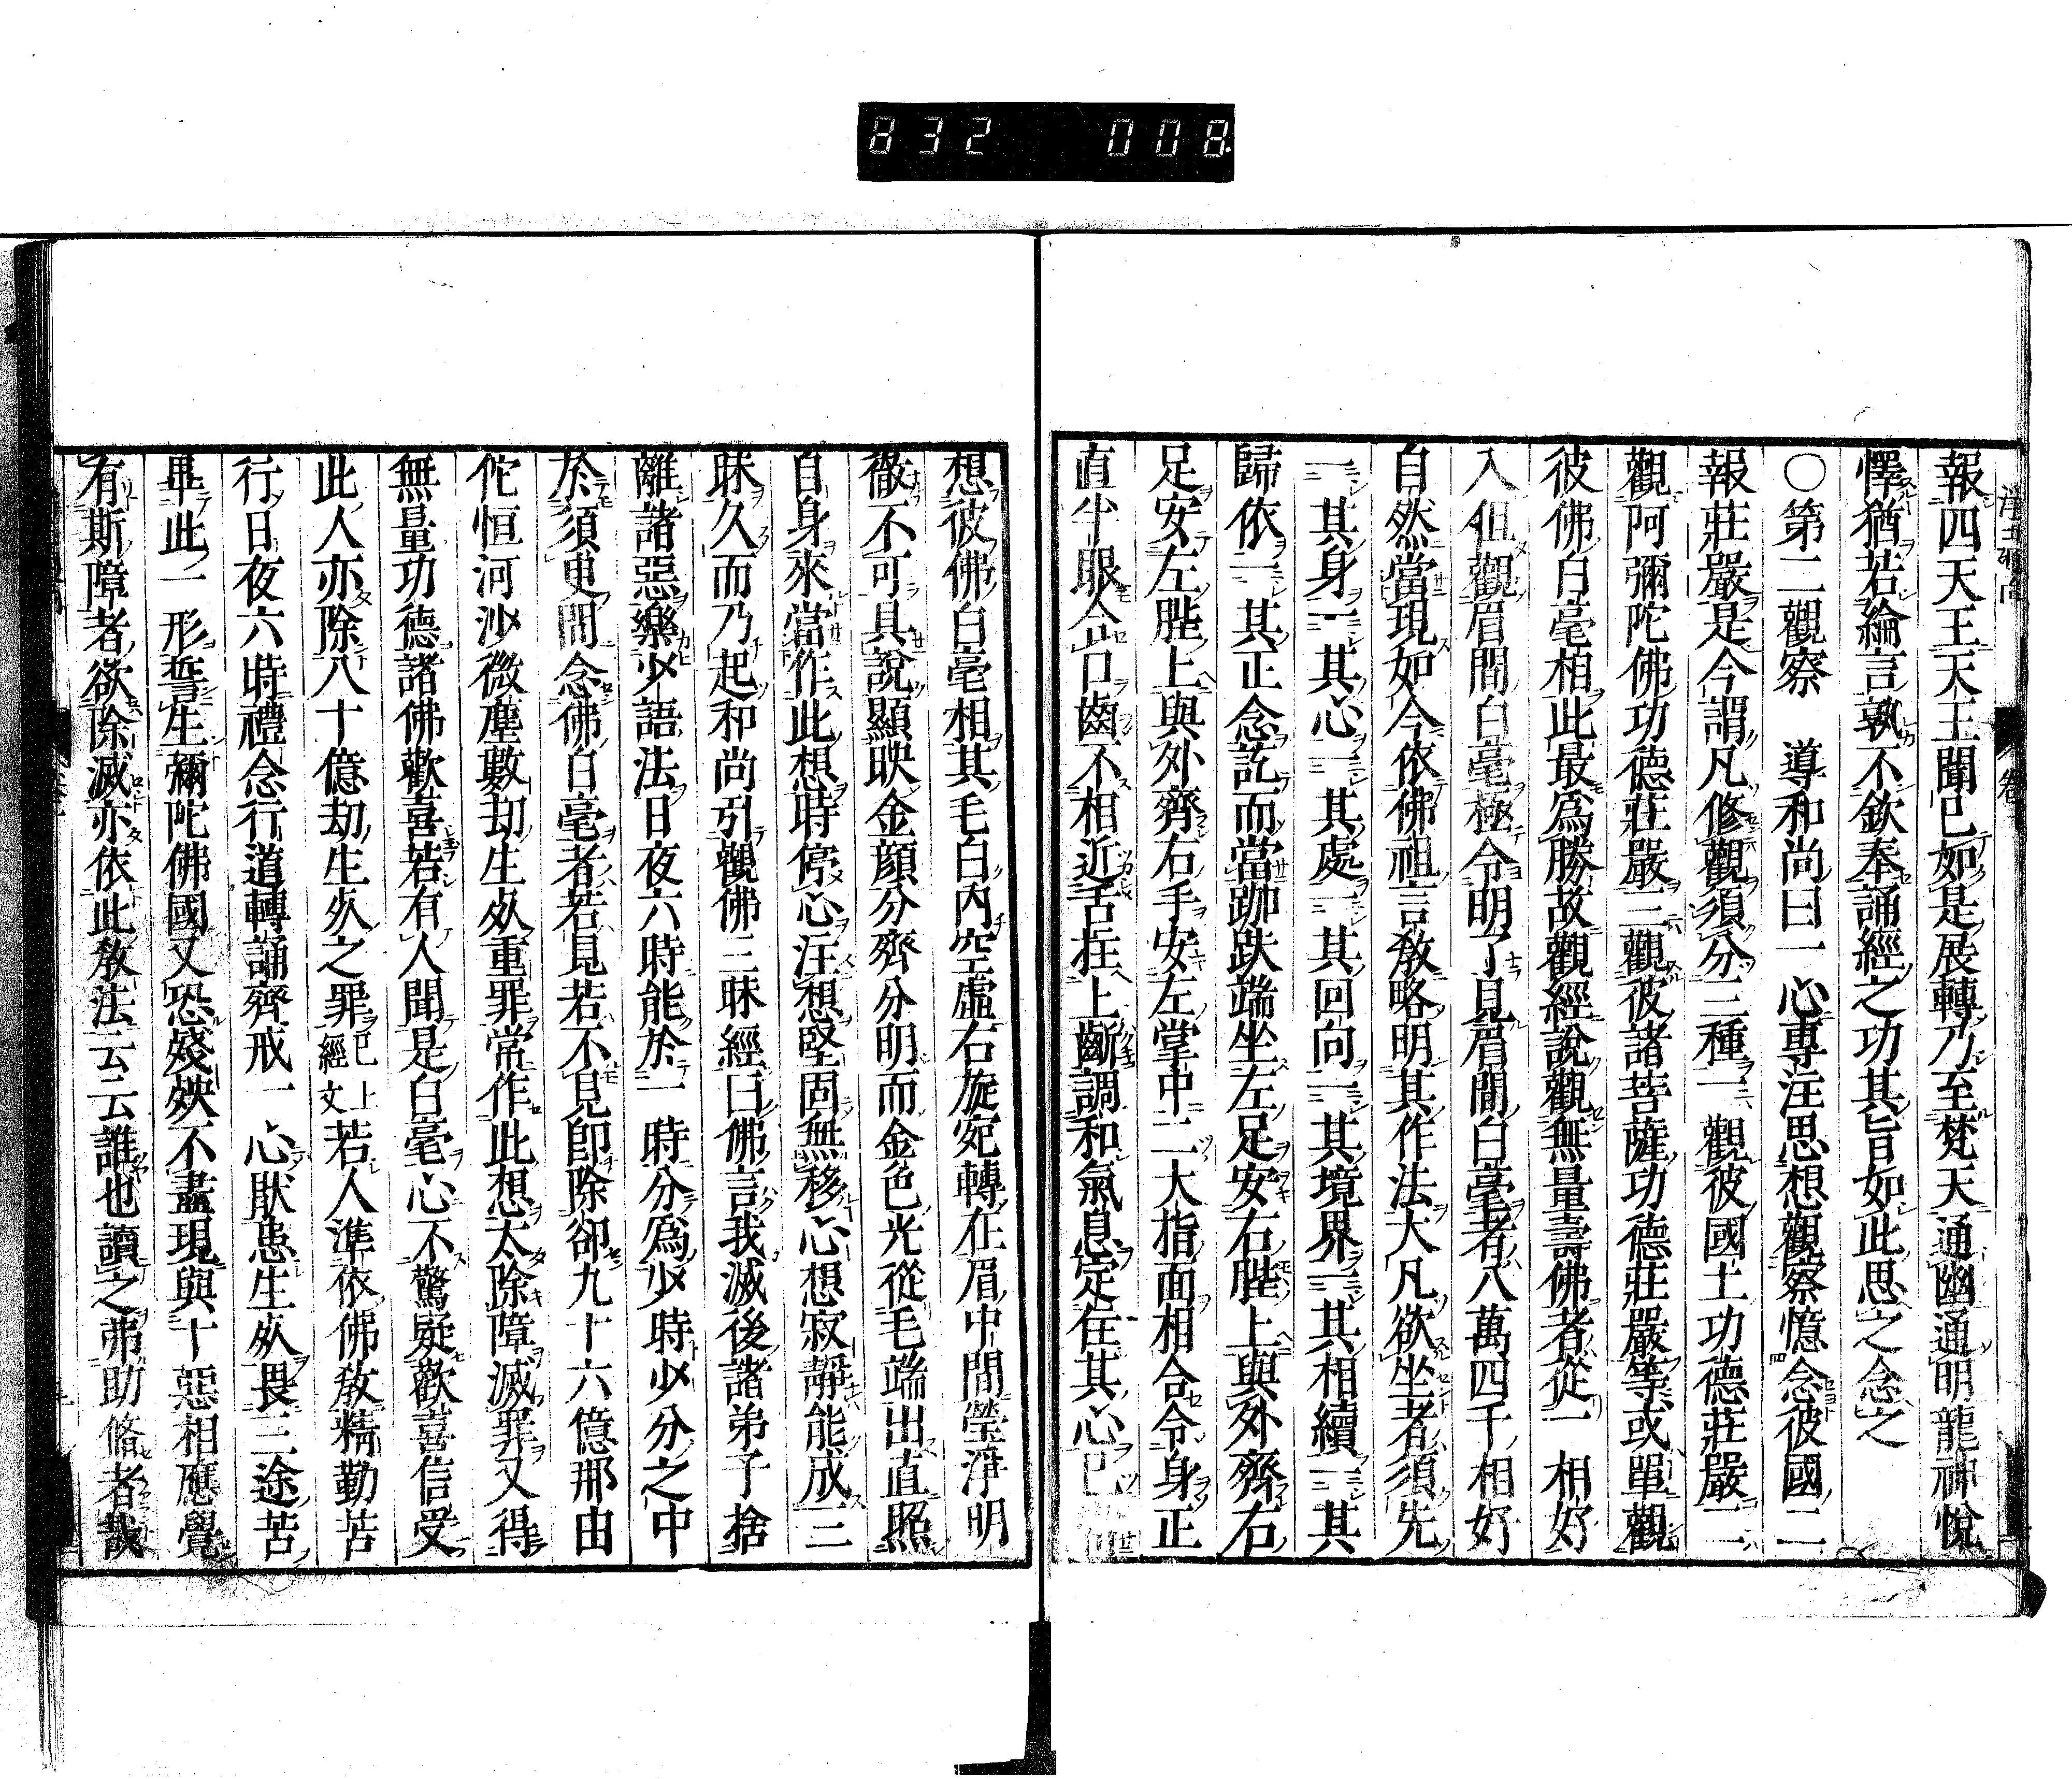 832 008
報四天王天王聞已如是展轉乃至梵天通幽通明龍神悅
懌猶若綸言孰不欽奉誦經之功其旨如此思之念之
○第二觀察 導和尚曰一心專注思想觀察憶念彼國二
報莊嚴是今謂凡修觀須分三種一觀彼國土功德莊嚴二
觀阿彌陀佛功德莊嚴三觀彼諸菩薩功德莊嚴等或單觀
彼佛白毫相此最爲勝故觀經說觀無量壽佛者從一相好
入但觀眉間白毫極令明了見眉間白毫者八萬四千相好
自然當現如今依佛祖言敎略明其作法大凡欲坐者須先
一其身一其心一其處一其回向一其境界一其相續一其
歸依一其正念訖而當跏趺端坐左足安右䏶上與外齊右
足安左䏶上與外齊右手安左掌中二大指面相合令身正
直半眼合口齒不相近舌拄上齗調和氣息定住其心已
想彼佛白毫相其毛白內空虛右旋宛轉在眉中間瑩淨明
徹不可具說顯映金顏分齊分明而金色光從毛端出直照
自身來當作此想時停心注想堅固無移心想寂靜能成三
昧久而乃起和尚引觀佛三昧經曰佛言我滅後諸弟子捨
離諸惡樂少語法日夜六時能於一時分爲少時少分之中
於須臾間念佛白毫者若見若不見卽除卻九十六億那由
佗恒河沙微塵數劫生死重罪常作此想太除障滅罪又得
無量功德諸佛歡喜若有人聞是白毫心不驚疑歡喜信受
此人亦除八十億劫生死之罪已上經文若人準依佛敎精勤苦
行日夜六時禮念行道轉誦齊戒一心猒患生死畏三途苦
畢此一形誓生彌陀佛國又恐殘殃不盡現與十惡相應覺
有斯障者欲除滅亦依此敎法云云誰也讀之弗助脩者哉